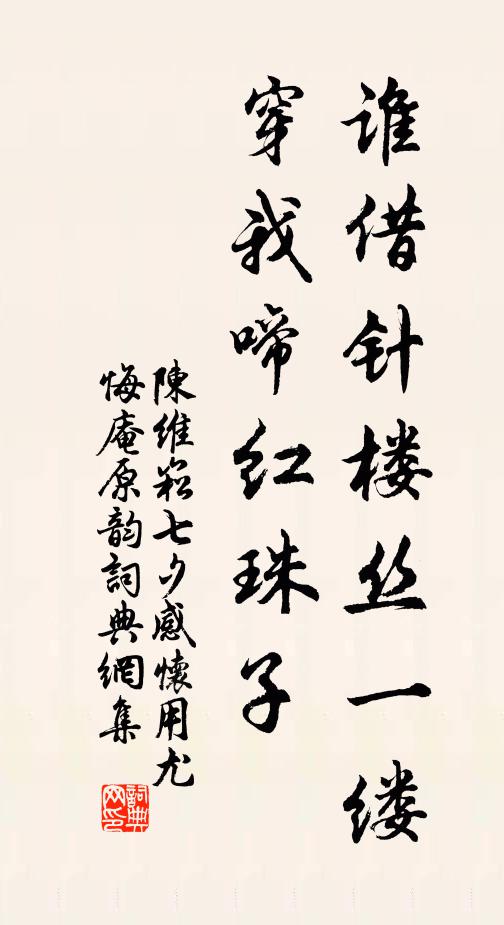 谁借针楼丝一缕
穿我啼红珠子
陳维崧七夕感懷用尤
悔庵原韵詞典網集
詞典
网印